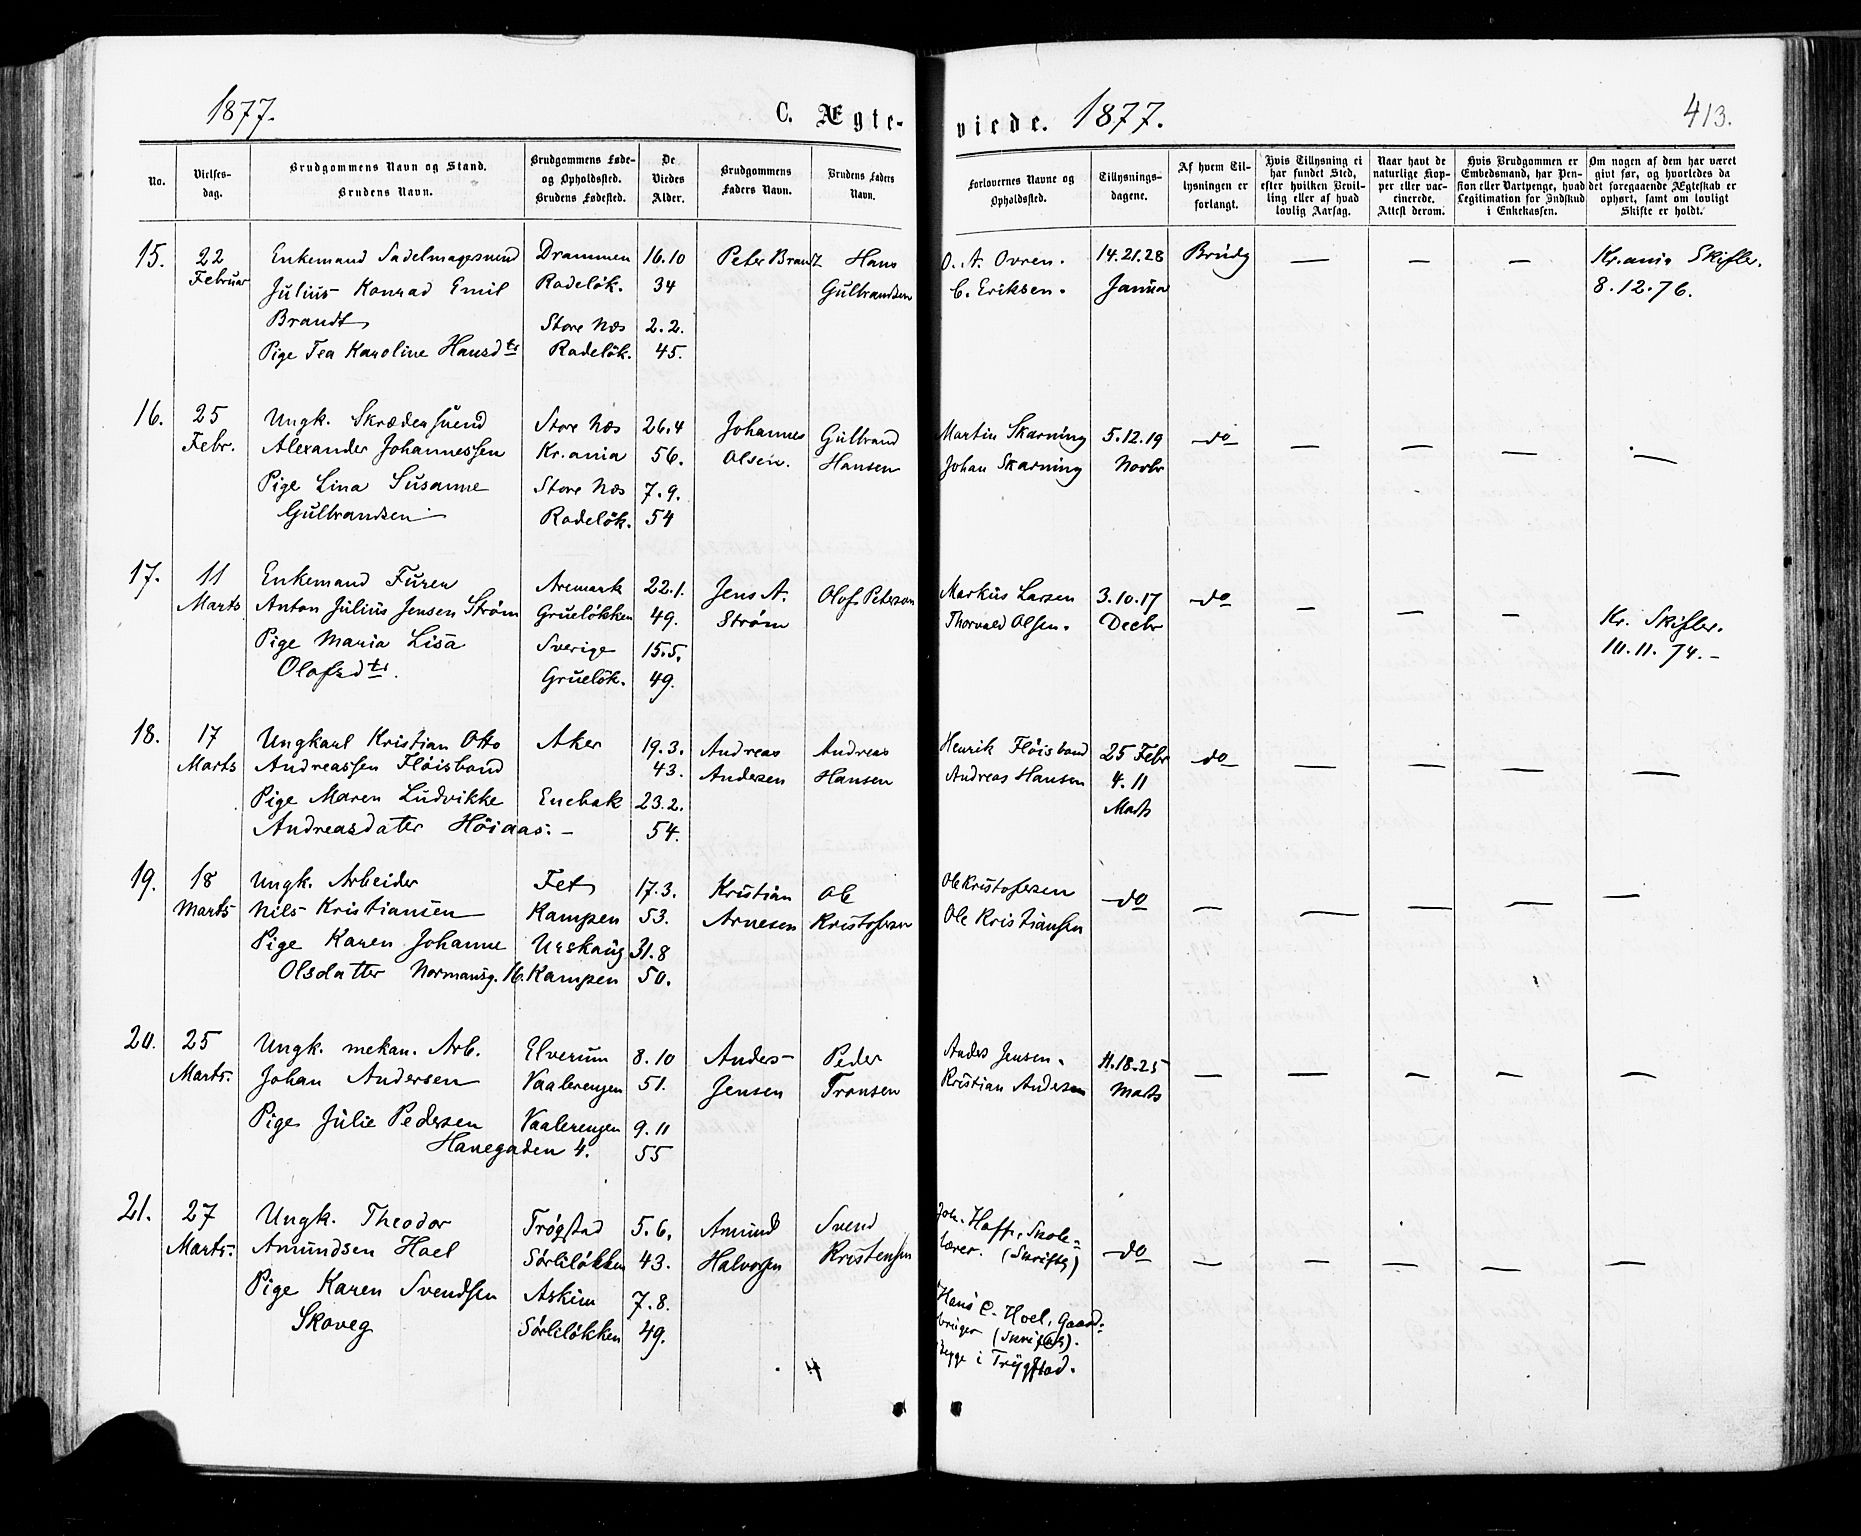 1877.
C. Ægte-
viede. 1877.
413.
No.
Vielses-
dag.
Brudgommens Navn og Stand.
Brudens Navn.
Brudgommens Føde-
og Opholdsted.
Brudens Fødested.
De
Viedes
Alder.
Brudgommens
Faders Navn.
Brudens Faders
Navn.
Forlovernes Navne og
Opholdsted.
Tillysnings-
dagene.
Af hvem Til-
lysningen er
forlangt.
Hvis Tillysning ei
har fundet Sted,
efter hvilken Bevil-
ling eller af hvad
lovlig Aarsag.
Naar havt de
naturlige Kop-
per eller vac-
cinerede.
Attest derom.
Hvis Brudgommen er
Embedsmand, har Pen-
sion eller Vartpenge, hvad
Legitimation for Indskud
i Enkekassen.
Om nogen af dem har været
givt før, og hvorledes da
det foregaaende Ægteskab er
ophørt, samt om lovligt
Skifte er holdt.
15.
22
Februar
Enkemand Sadelmagersvend
Julius Konrad Emil
Brandt
Pige Tea Karoline Hansdtr
Drammen
Rodeløk.
Store Næs
Rodeløk.
16.10
34
2.2.
45.
Peter Brandt
Hans
Gulbrandsen
O. A. Ovren.
C. Eriksen.
14.21.28
Janua
Brudg
—
—
—
Kr.ania Skifter.
8.12.76.
16.
25
Febr.
Ungk. Skrædersvend
Alexander Johannessen
Pige Lina Susanne
Gulbrandsen
Store Næs
Kr.ania
Store Næs
Rodeløk.
26.4
56.
7.9.
54
Johannes
Olsen.
Gulbrand
Hansen
Martin Skarning
Johan Skarning
5.12.19
Novbr
do
—
—
—
—
17.
11
Marts
Enkemand Furer
Anton Julius Jensen Strøm
Pige Maria Lisa
Olafsdtr.
Aremark
Grueløkken
Sverige
Grueløk.
22.1.
49.
15.5.
49.
Jens A.
Strøm
Olof Peterson
Markus Larsen
Thorvald Olsen.
3.10.17
Decbr
do
—
—
—
Kr. Skifter.
10.11.74.-
18.
17
Marts
Ungkarl Kristian Otto
Andreassen Fløisbond
Pige Maren Ludvikke
Andreasdater Høiaas.-
Aker
Enebak
19.3.
43.
23.2.
54.
Andreas
Andersen
Andreas
Hansen
Henrik Fløisbond
Andreas Hansen
25 Febr
4.11
Marts
do
—
—
—
—
19.
18
Marts
Ungk. Arbeider
Nils Kristiansen
Pige Karen Johanne
Olsdatter Normansg. 16.
Fet
Kampen
Urskaug
Kampen
17.3.
53.
31.8
50.
Kristian
Arnesen
Ole
Kristofersen
Ole Kristofersen
Ole Kristiansen
do
—
—
—
—
—
20.
25
Marts.
Ungk. mekan. Arb.
Johan Andersen
Pige Julie Pedersen
Hanegaden 4.
Elverum
Vaalerengen
Vaalerengen
8.10
51.
9.11
55
Anders
Jensen
Peder
Tronsen
Anders Jensen.
Kristian Andersen
11.18.25
Marts
—
—
—
—
—
21.
27
Marts.
Ungk. Theodor
Amundsen Hoel
Pige Karen Svendsen
Skoveg
Trøgstad
Sørliløkken
Askim
Sørliløkken
5.6.
43.
7.8.
49.
Amund
Halvorsen
Svend
Kristensen
Joh. Hoff, Skole-
lærer. (Skriftlg)
Hans C. Hoel, Gaard-
bruger (Skriftlg).
Begge i Trygstad.
do
—
—
—
—
—